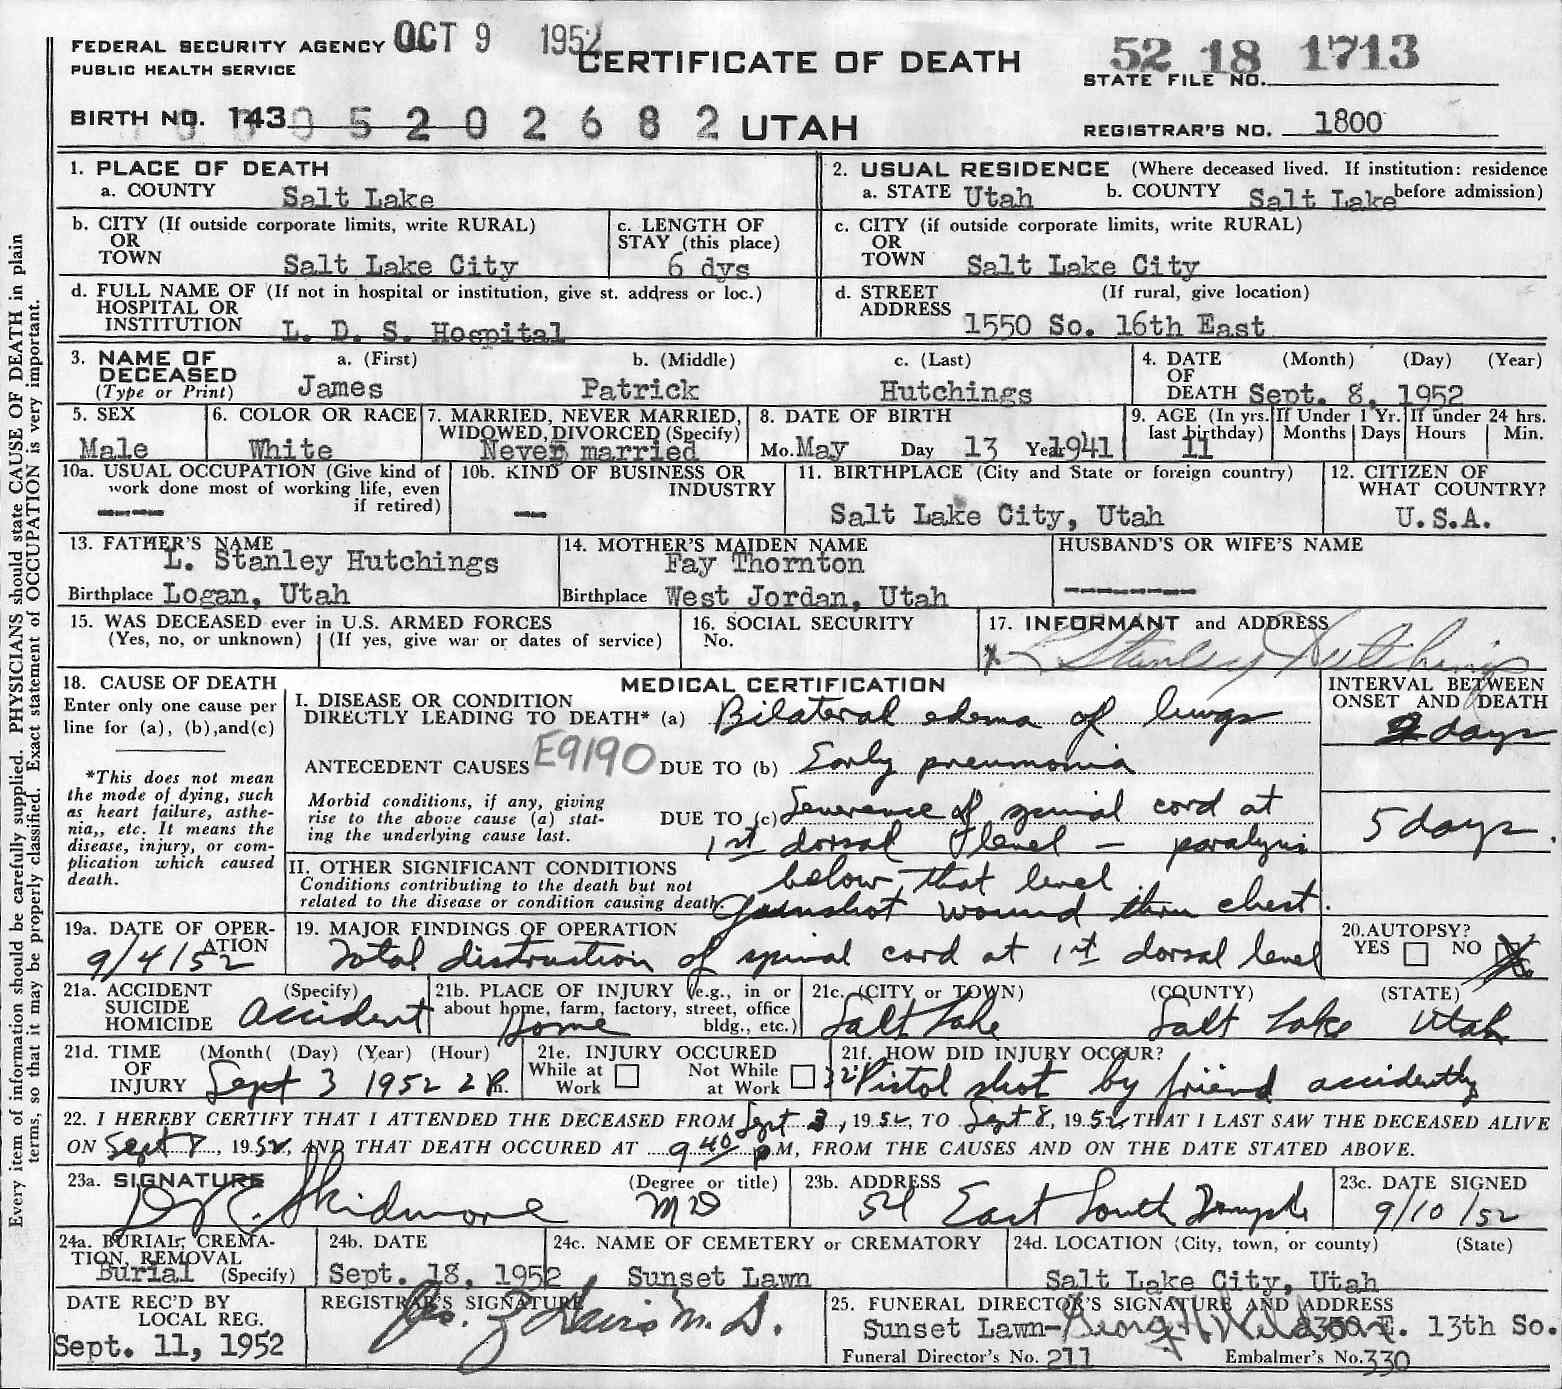 FEDERAL SECURITY AGENCY OCT 9 1952 CERTIFICATE OF DEATH 52 18 1713
PUBLIC HEALTH SERVICE STATE FILE NO.
BIRTH NO. 143 05202682 UTAH REGISTRAR'S NO. 1800
Every item of information should be carefully supplied. PHYSICIANS should state CAUSE OF DEATH in plain
terms, so that it may be properly classified. Exact statement of OCCUPATION is very important.
1. PLACE OF DEATH
a. COUNTY Salt Lake
2. USUAL RESIDENCE (Where deceased lived. If institution: residence
a. STATE Utah b. COUNTY Salt Lake before admission)
b. CITY (If outside corporate limits, write RURAL)
OR
TOWN Salt Lake City
c. LENGTH OF
STAY (this place)
6 dys
c. CITY (if outside corporate limits, write RURAL)
OR
TOWN Salt Lake City
d. FULL NAME OF (If not in hospital or institution, give st. address or loc.)
HOSPITAL OR
INSTITUTION L. D. S. Hospital
d. STREET (If rural, give location)
ADDRESS 1550 So. 16th East
3. NAME OF a. (First) b. (Middle) c. (Last)
DECEASED
(Type or Print) James Patrick Hutchings
4. DATE (Month) (Day) (Year)
OF
DEATH Sept. 8, 1952
5. SEX
Male
6. COLOR OR RACE
White
7. MARRIED, NEVER MARRIED,
WIDOWED, DIVORCED (Specify)
Never married
8. DATE OF BIRTH
Mo. May Day 13 Year 1941
9. AGE (In yrs.
last birthday)
11
If Under 1 Yr.
Months Days
If under 24 hrs.
Hours Min.
10a. USUAL OCCUPATION (Give kind of
work done most of working life, even
if retired)
----
10b. KIND OF BUSINESS OR
INDUSTRY
--
11. BIRTHPLACE (City and State or foreign country)
Salt Lake City, Utah
12. CITIZEN OF
WHAT COUNTRY?
U.S.A.
13. FATHER'S NAME
L. Stanley Hutchings
Birthplace Logan, Utah
14. MOTHER'S MAIDEN NAME
Fay Thornton
Birthplace West Jordan, Utah
HUSBAND'S OR WIFE'S NAME
--------
15. WAS DECEASED ever in U.S. ARMED FORCES
(Yes, no, or unknown) (If yes, give war or dates of service)
16. SOCIAL SECURITY
No.
17. INFORMANT and ADDRESS
x L Stanley Hutchings
18. CAUSE OF DEATH
Enter only one cause per
line for (a), (b), and (c)
*This does not mean
the mode of dying, such
as heart failure, asthe-
nia,, etc. It means the
disease, injury, or com-
plication which caused
death.
MEDICAL CERTIFICATION
I. DISEASE OR CONDITION
DIRECTLY LEADING TO DEATH* (a) Bilateral edema of lungs
ANTECEDENT CAUSES E9190 DUE TO (b) Early pneumonia
Morbid conditions, if any, giving
rise to the above cause (a) stat-
ing the underlying cause last.
DUE TO (c) Severence of spinal cord at
1st dorsal level - paralysis
below that level
II. OTHER SIGNIFICANT CONDITIONS
Conditions contributing to the death but not
related to the disease or condition causing death.
Gunshot wound thru chest.
INTERVAL BETWEEN
ONSET AND DEATH
2 days
5 days.
19a. DATE OF OPER-
ATION
9/4/52
19. MAJOR FINDINGS OF OPERATION
Total distruction of spinal cord at 1st dorsal level
20. AUTOPSY?
YES NO X
21a. ACCIDENT (Specify)
SUICIDE
HOMICIDE Accident
21b. PLACE OF INJURY (e.g., in or
about home, farm, factory, street, office
bldg., etc.)
Home
21c. (CITY or TOWN) (COUNTY) (STATE)
Salt Lake Salt Lake Utah
21d. TIME (Month( (Day) (Year) (Hour)
OF
INJURY Sept 3 1952 2 P.
21e. INJURY OCCURED
While at Work Not While at Work
21f. HOW DID INJURY OCCUR?
32 Pistol shot by friend accidently
22. I HEREBY CERTIFY THAT I ATTENDED THE DECEASED FROM Sept 3, 1952, TO Sept 8, 1952, THAT I LAST SAW THE DECEASED ALIVE
ON Sept 8, 1952, AND THAT DEATH OCCURED AT 9 40 P.M, FROM THE CAUSES AND ON THE DATE STATED ABOVE.
23a. SIGNATURE (Degree or title)
Skidmore MD
23b. ADDRESS
54 East South Temple
23c. DATE SIGNED
9/10/52
24a. BURIAL, CREMA-
TION, REMOVAL
Burial (Specify)
24b. DATE
Sept. 18, 1952
24c. NAME OF CEMETERY or CREMATORY
Sunset Lawn
24d. LOCATION (City, town, or county) (State)
Salt Lake City, Utah
DATE REC'D BY
LOCAL REG.
Sept. 11, 1952
REGISTRAR'S SIGNATURE
M.D.
25. FUNERAL DIRECTOR'S SIGNATURE AND ADDRESS
Sunset Lawn- 2350 E. 13th So.
Funeral Director's No. 211 Embalmer's No. 330